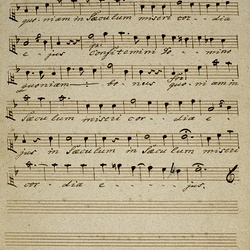 quoniam in Sæculum miseri cor - dia
e - jus Confitemini Do - mino
quoniam bo - nus quoni am in
Sæcu lum miseri cor - dia e -
jus in Sæculum in Sæculum miseri
cor - dia e - - jus.